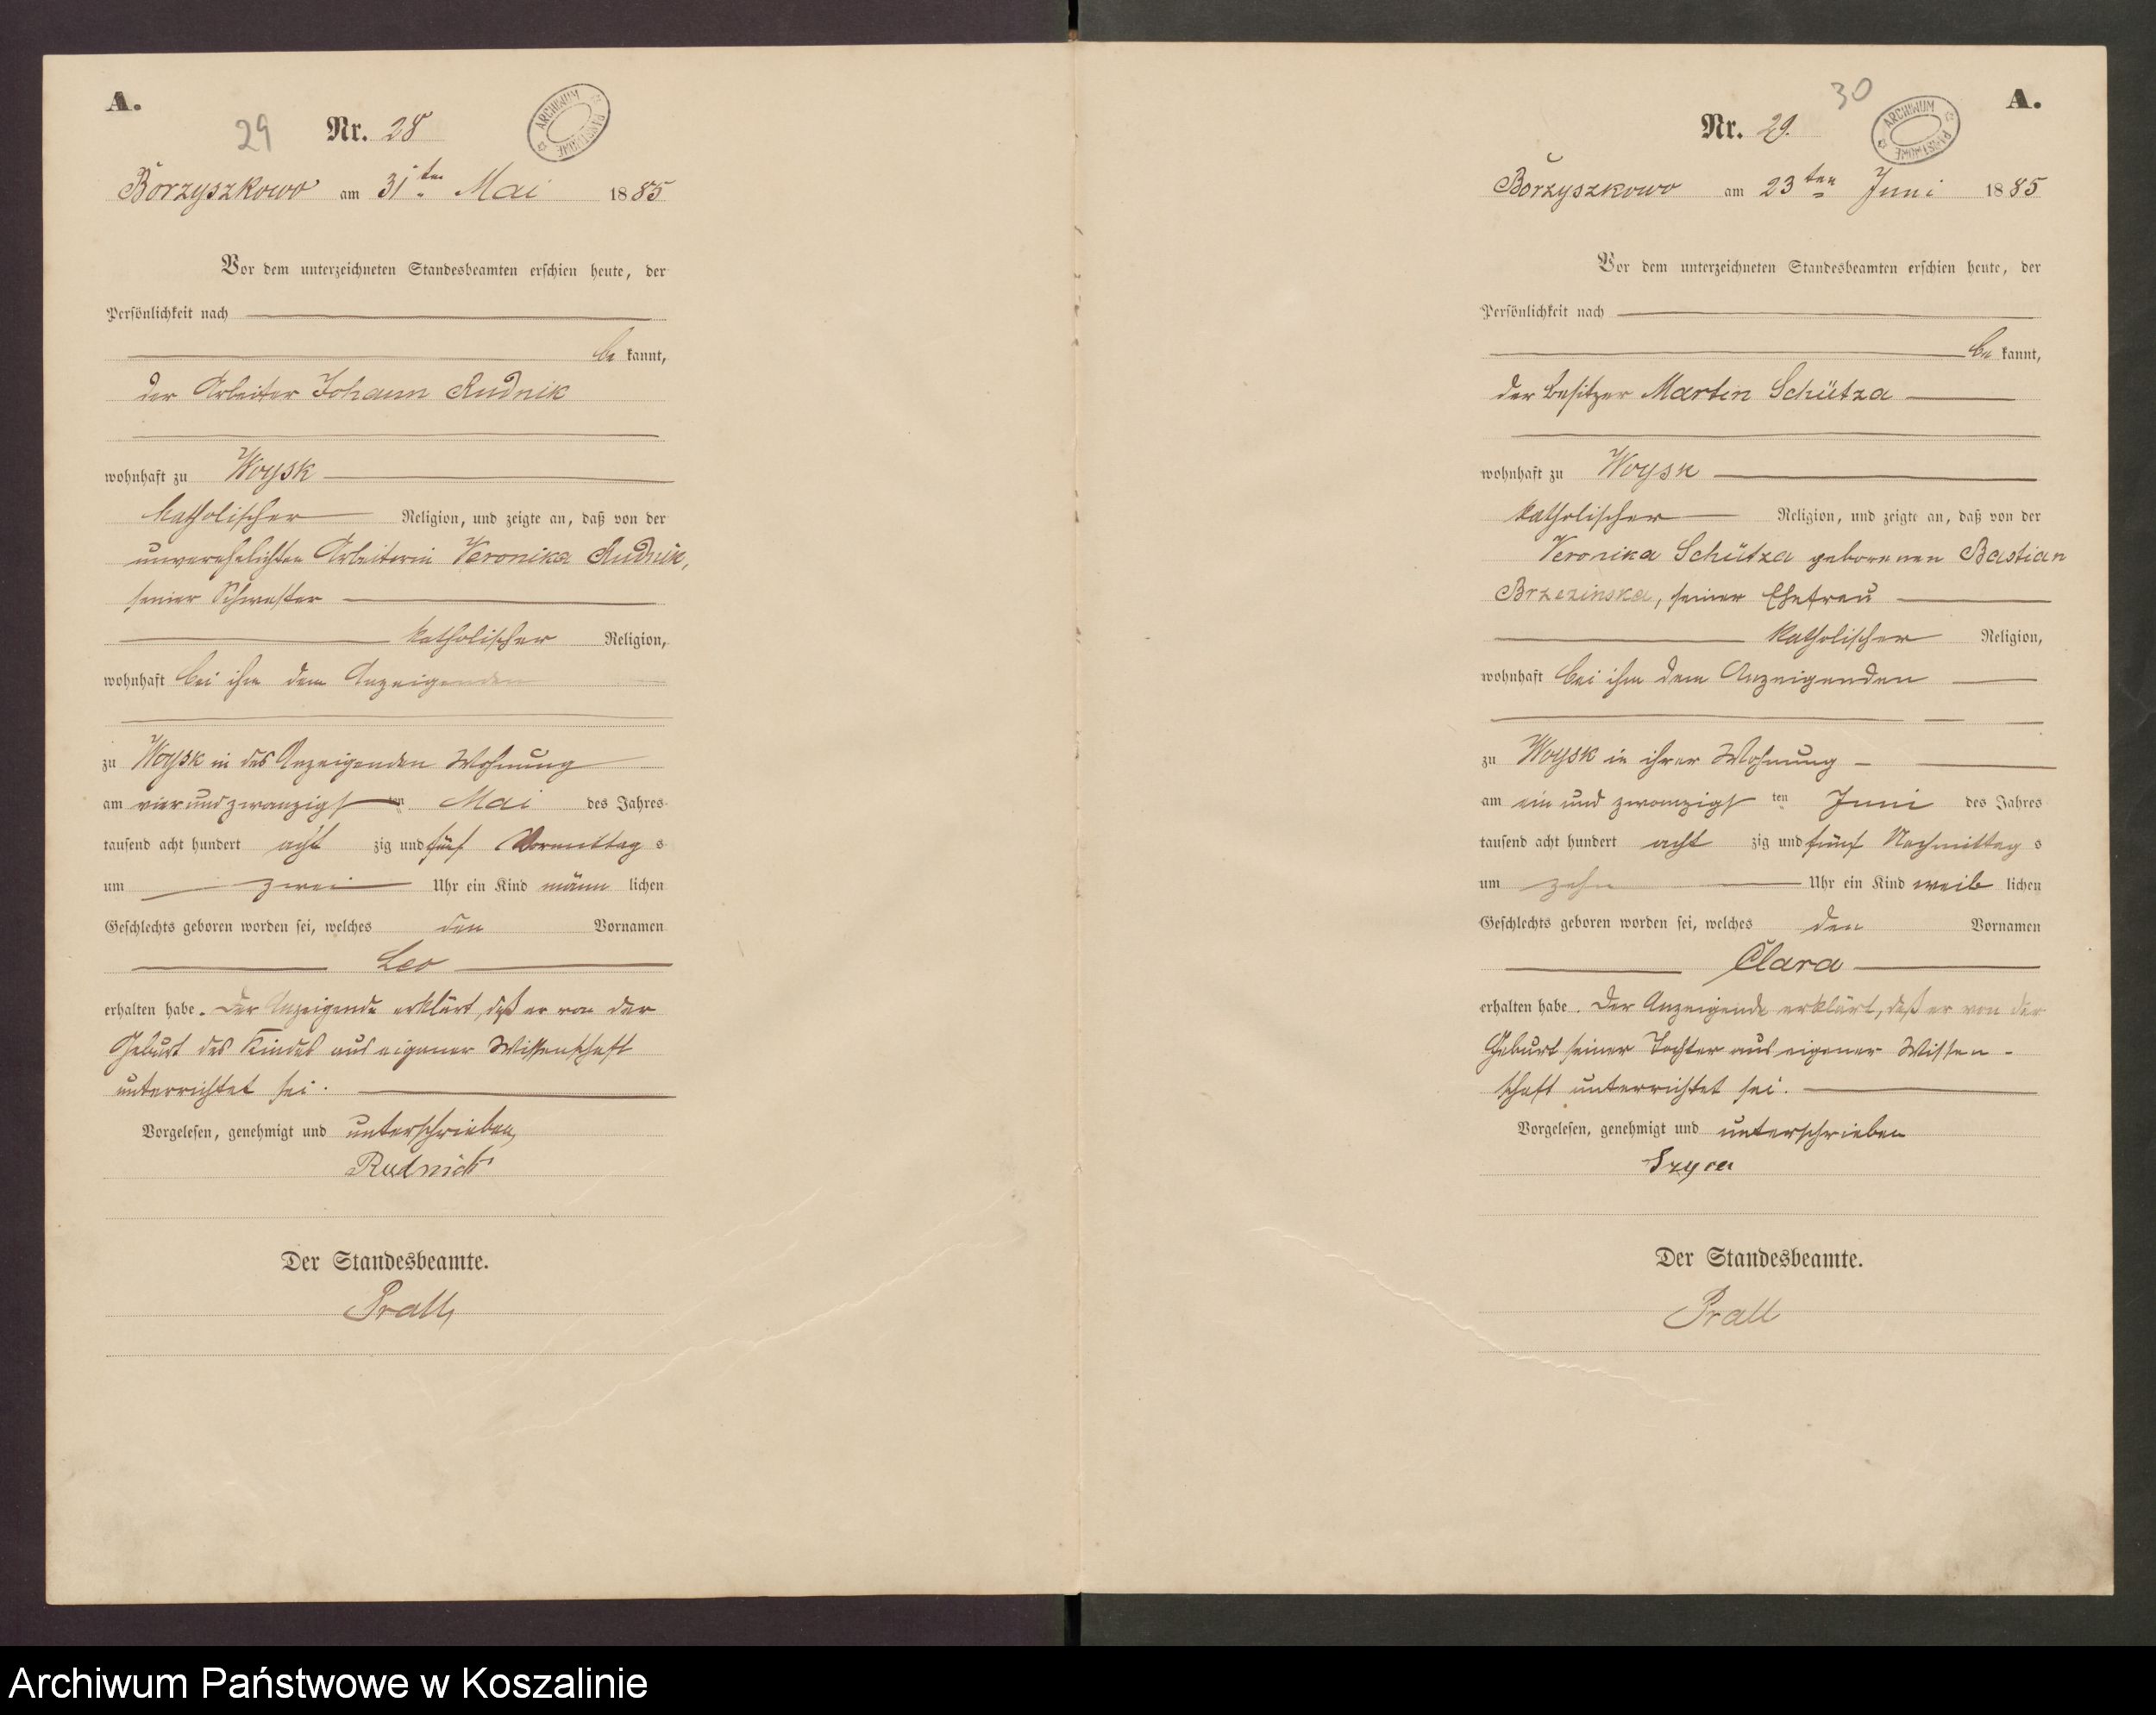 A.
29
Nr. 28
ARCHIWUM PAŃSTWOWE
Borzyszkowo am 31ten Mai 1885
Vor dem unterzeichneten Standesbeamten erschien heute, der
Persönlichkeit nach
be kannt,
der Arbeiter Johann Rudnik
wohnhaft zu Woysk
katholischer Religion, und zeigte an, daß von der
unverehelichten Arbeiterin Veronika Rudnik,
seiner Schwester
katholischer Religion,
wohnhaft bei ihm dem Anzeigenden
zu Woysk in des Anzeigenden Wohnung
am vierundzwanzigsten Mai des Jahres
tausend acht hundert acht zig und fünf Vormittag s
um zwei Uhr ein Kind männ lichen
Geschlechts geboren worden sei, welches den Vornamen
Leo
erhalten habe. Der Anzeigende erklärt, daß er von der
Geburt des Kindes aus eigener Wissenschaft
unterrichtet sei.
Vorgelesen, genehmigt und unterschrieben
Rudnick
Der Standesbeamte.
Prall
30
A.
Nr. 29.
ARCHIWUM PAŃSTWOWE
Borzyszkowo am 23ten Juni 1885
Vor dem unterzeichneten Standesbeamten erschien heute, der
Persönlichkeit nach
be kannt,
der Besitzer Martin Schütza
wohnhaft zu Woysk
katholischer Religion, und zeigte an, daß von der
Veronika Schütza geborenen Bastian
Brzezinska, seiner Ehefrau
katholischer Religion,
wohnhaft bei ihm dem Anzeigenden
zu Woysk in ihrer Wohnung
am ein und zwanzigs ten Juni des Jahres
tausend acht hundert acht zig und fünf Nachmittag s
um zehn Uhr ein Kind weib lichen
Geschlechts geboren worden sei, welches den Vornamen
Clara
erhalten habe. Der Anzeigende erklärt, daß er von der
Geburt seiner Tochter aus eigener Wissen-
schaft unterrichtet sei.
Vorgelesen, genehmigt und unterschrieben
Der Standesbeamte.
Prall
Archiwum Państwowe w Koszalinie